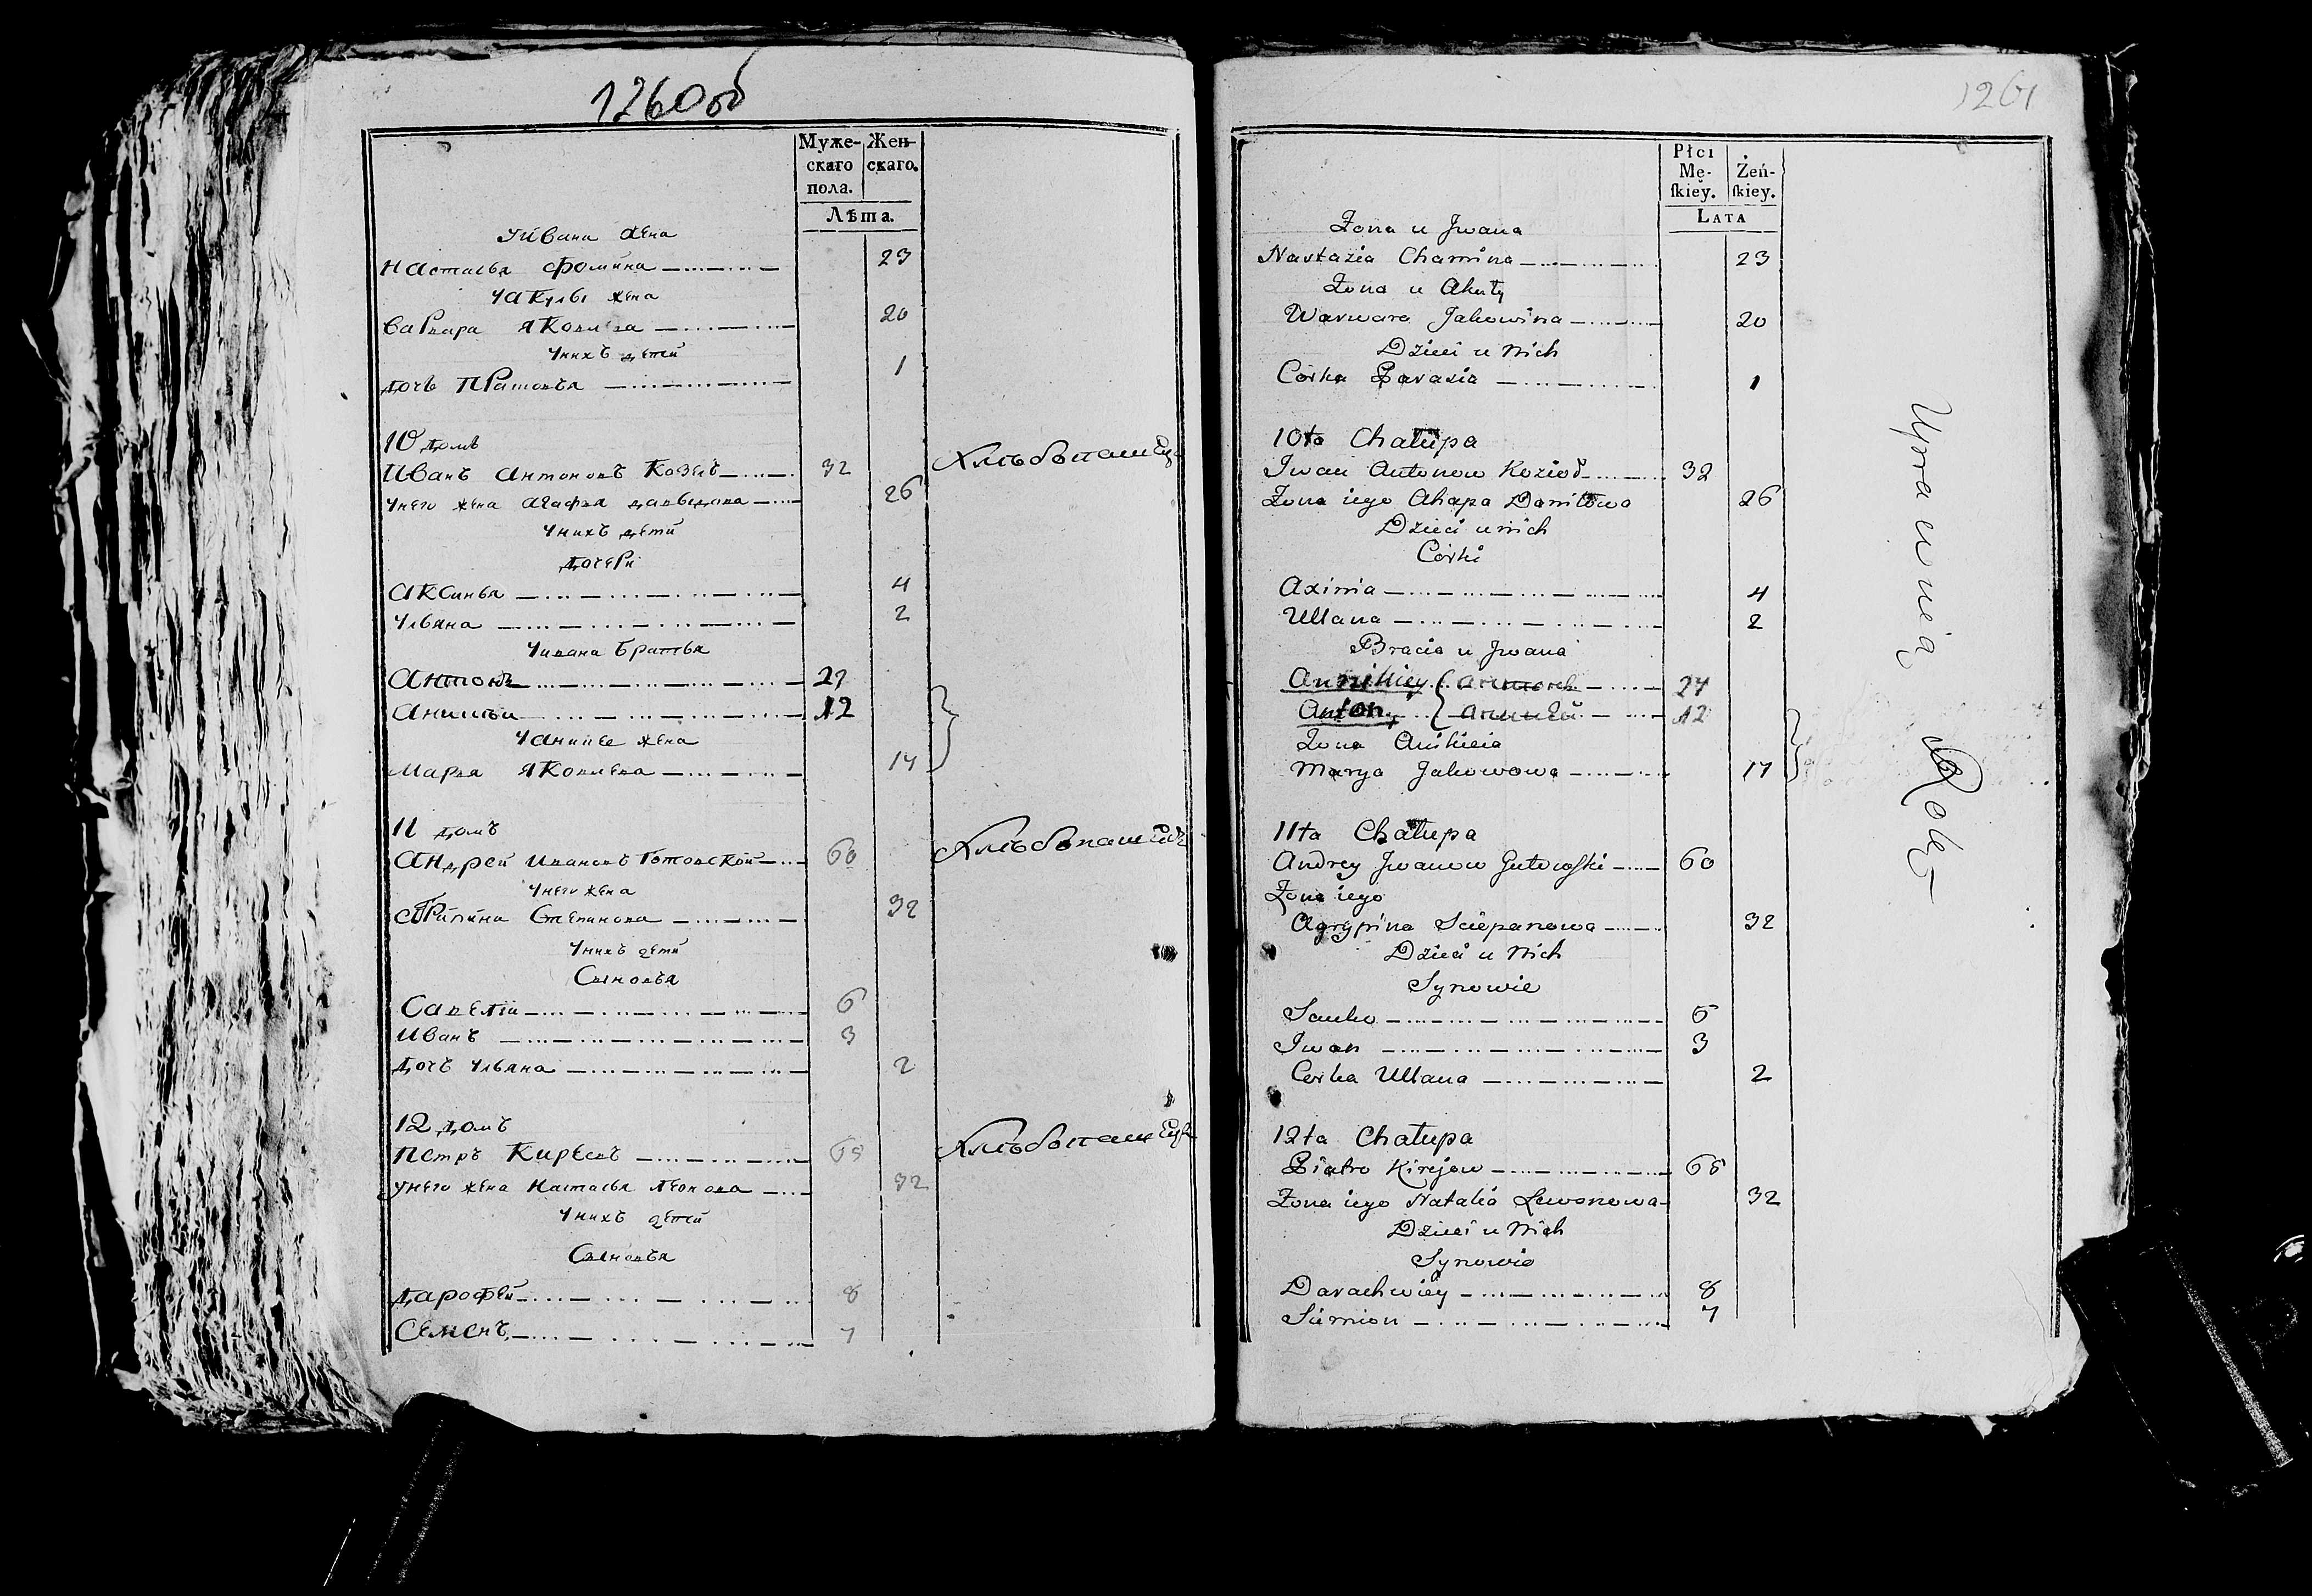 1260об
Муже-
скаго
пола.
Жен-
скаго.
Лѣта.
Уивана жена
Настасья Фомина 23
Уакулы жена
Варвара Яковлева 20
Унихъ детей
дочь 1
10 домъ
Иванъ Антоновъ Козелъ 32 Хлѣбопашецъ
Унего жена Агафья давыдова 26
Унихъ дети
дочери
Аксинья 4
Ульяна 2
Уивана братья
Антонъ
Аникѣи 12
Уаникея жена
Марья Яковлева
11 домъ
Андрей Ивановъ Готовской 60 Хлѣбопашецъ
Унего жена
Степанова 32
Унихъ дети
Сыновья
Савелiи 6
Иванъ 3
дочь Ульяна 2
12 домъ
Петръ Киреевъ 65 Хлѣбопашецъ
Унего жена Наталья Леонова 32
Унихъ детей
Сыновья
дарофей 8
Семенъ 7
1261
Płci
Mę-
skiey.
Żeń-
skiey.
Lata
Żona u Jwana
Nastazia Chamina 23
Żona u Akuły
Warwara Jakowina 20
Dzieci u Nich
Córka Parasia 1
10ta Chałupa
Jwan Antonow Kozioł 32
Żona iego Ahapa Daniłowa 26
Dzieci u nich
Córki
Axinia 4
Ullana 2
Bracia u Jwana
Annikiey
Anton 12
Żona Anikieia
Marya Jakowowa
11ta Chałupa
Andrey Jwanow Gutowski 60
Żona iego
Agrypina Sciepanowa 32
Dzieci u Nich
Synowie
Sauko 6
Jwan 3
Corka Ullana 2
12ta Chałupa
Piatro Kirejow 65
Żona iego Natalia Lewonowa 32
Dzieci u Nich
Synowie
Darachwiey 8
Siemion 7
Uprawnią Rolę